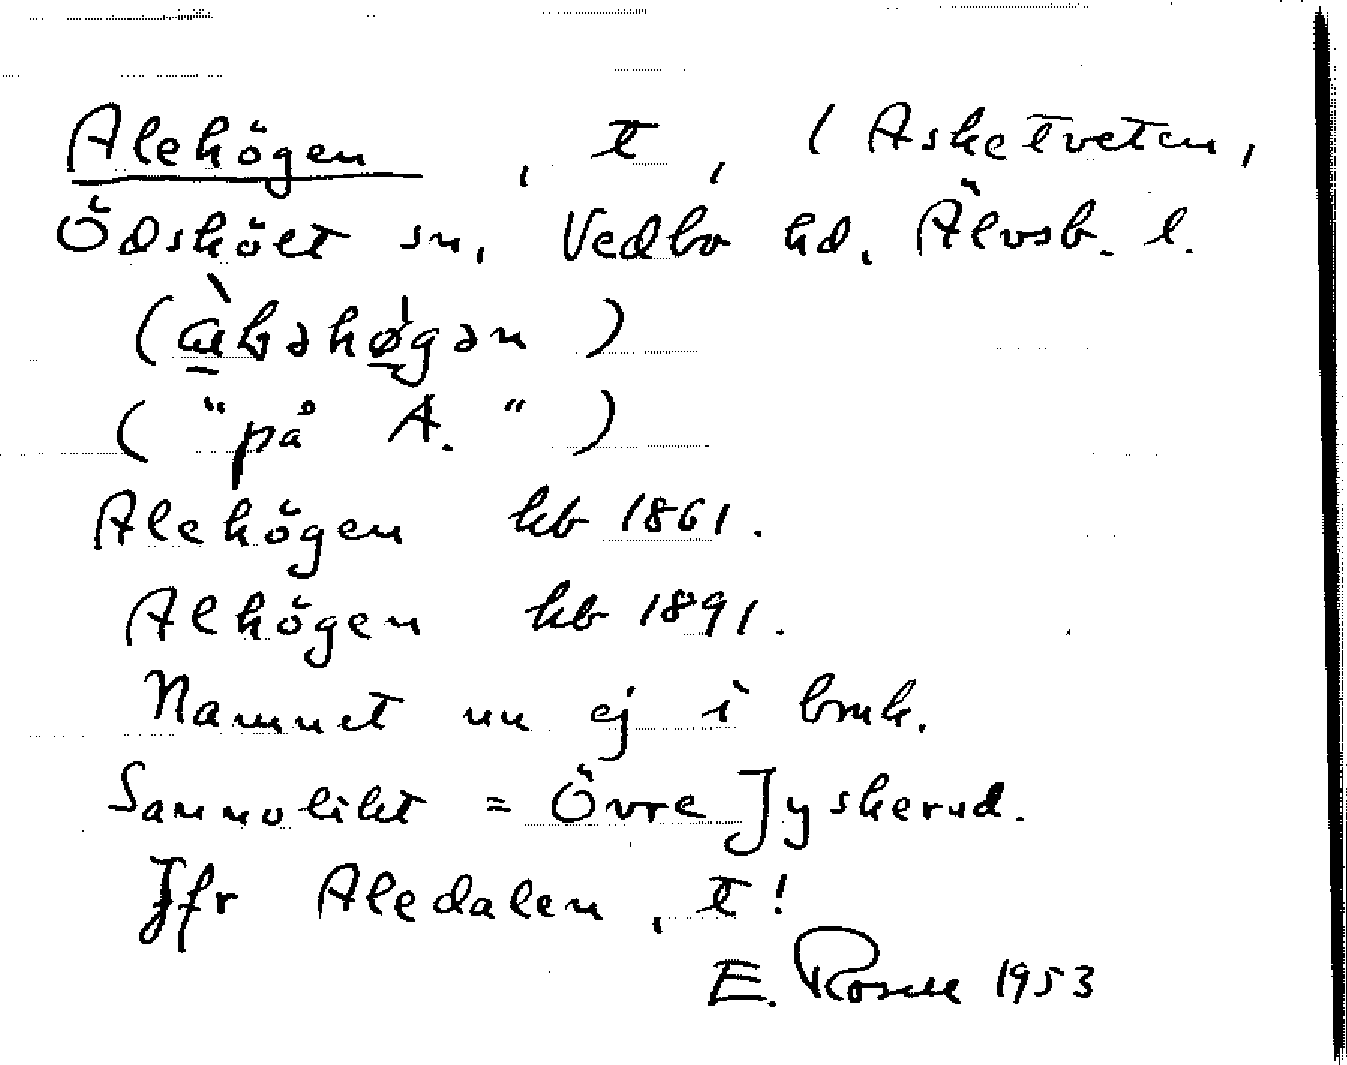 Alehögen, t, (Asketveten,
Ödskölt sn, Vedbo hd, Älvsb. l.
("på A.")
Alehögen kb 1861.
Alhögen kb 1891.
Namnet nu ej i bruk.
Sannolikt = Övre Jyskerud.
Jfr Aledalen, t!
E. Rosell 1953